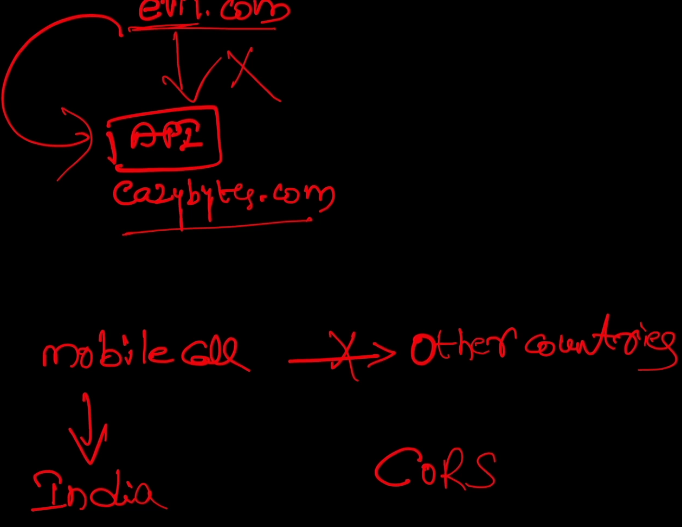 evil.com
API
eazybytes.com
mobile call
Other countries
India
CORS